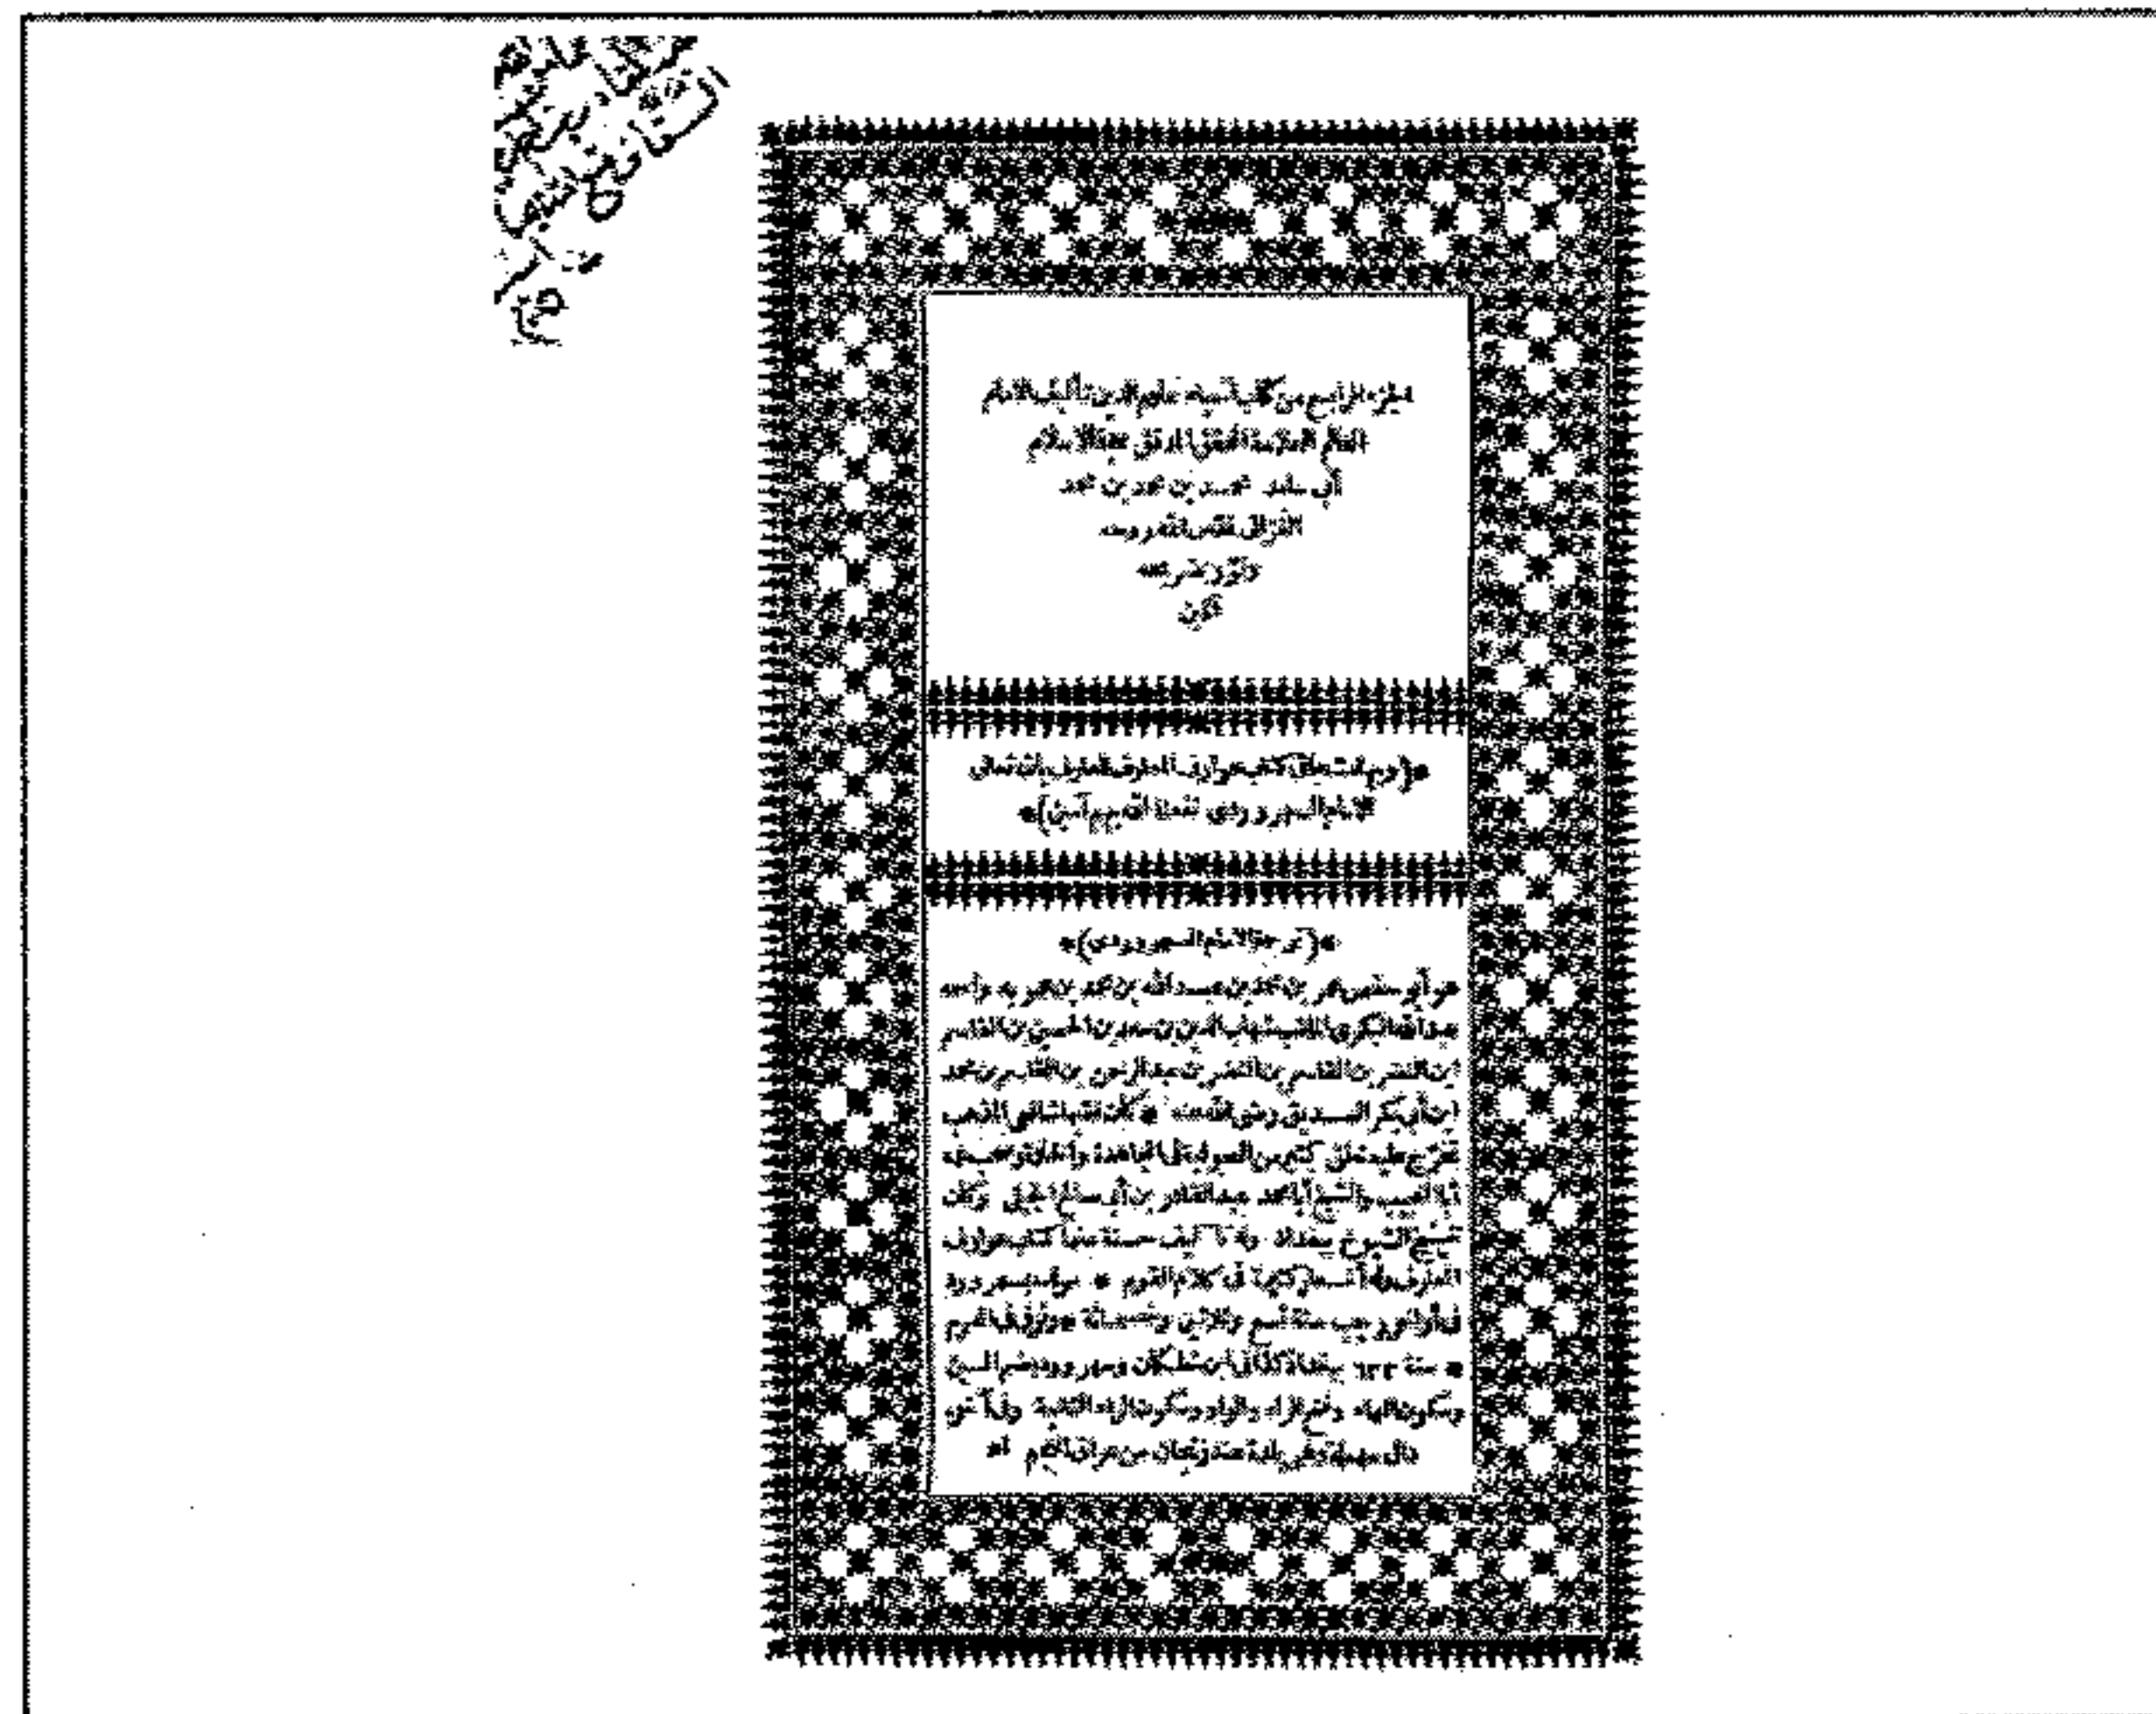 الجزء الرابع من كتاب احياء علوم الدين تأليف الامام
العالم العلامة المحقق المدقق حجة الاسلام
أبي حامد محمد بن محمد بن محمد
الغزالي قدس الله روحه
ونور ضريحه
آمين
*(وبهامشه باقي كتاب عوارف المعارف للعارف بالله تعالى
الامام السهروردي نفعنا الله بهم آمين)*
*(ترجمة الامام السهروردي)*
هو أبو حفص عمر بن محمد بن عبد الله بن محمد بن عمويه واسمه
عبد الله البكري الملقب شهاب الدين بن سعد بن الحسين بن القاسم
ابن النضر بن القاسم بن النضر بن عبد الرحمن بن القاسم بن محمد
ابن أبي بكر الصديق رضي الله عنه * كان فقيها شافعي المذهب
تخرج عليه خلق كثير من الصوفية في المجاهدة والخلوة وصحب عمه
أبا النجيب والشيخ أبا محمد عبد القادر بن أبي صالح الجيلي وكان
شيخ الشيوخ ببغداد وله تآليف حسنة منها كتاب عوارف
المعارف وله أشعار كثيرة في كلام القوم * مولده بسهرورد
في أواخر رجب سنة تسع وثلاثين وخمسمائة * وتوفي في المحرم
* سنة ٦٣٢ ببغداد كذا في ابن خلكان وسهرورد بضم السين
وسكون الهاء وفتح الراء والواو وسكون الراء الثانية وفي آخره
دال مهملة وهي بليدة عند زنجان من عراق العجم اه